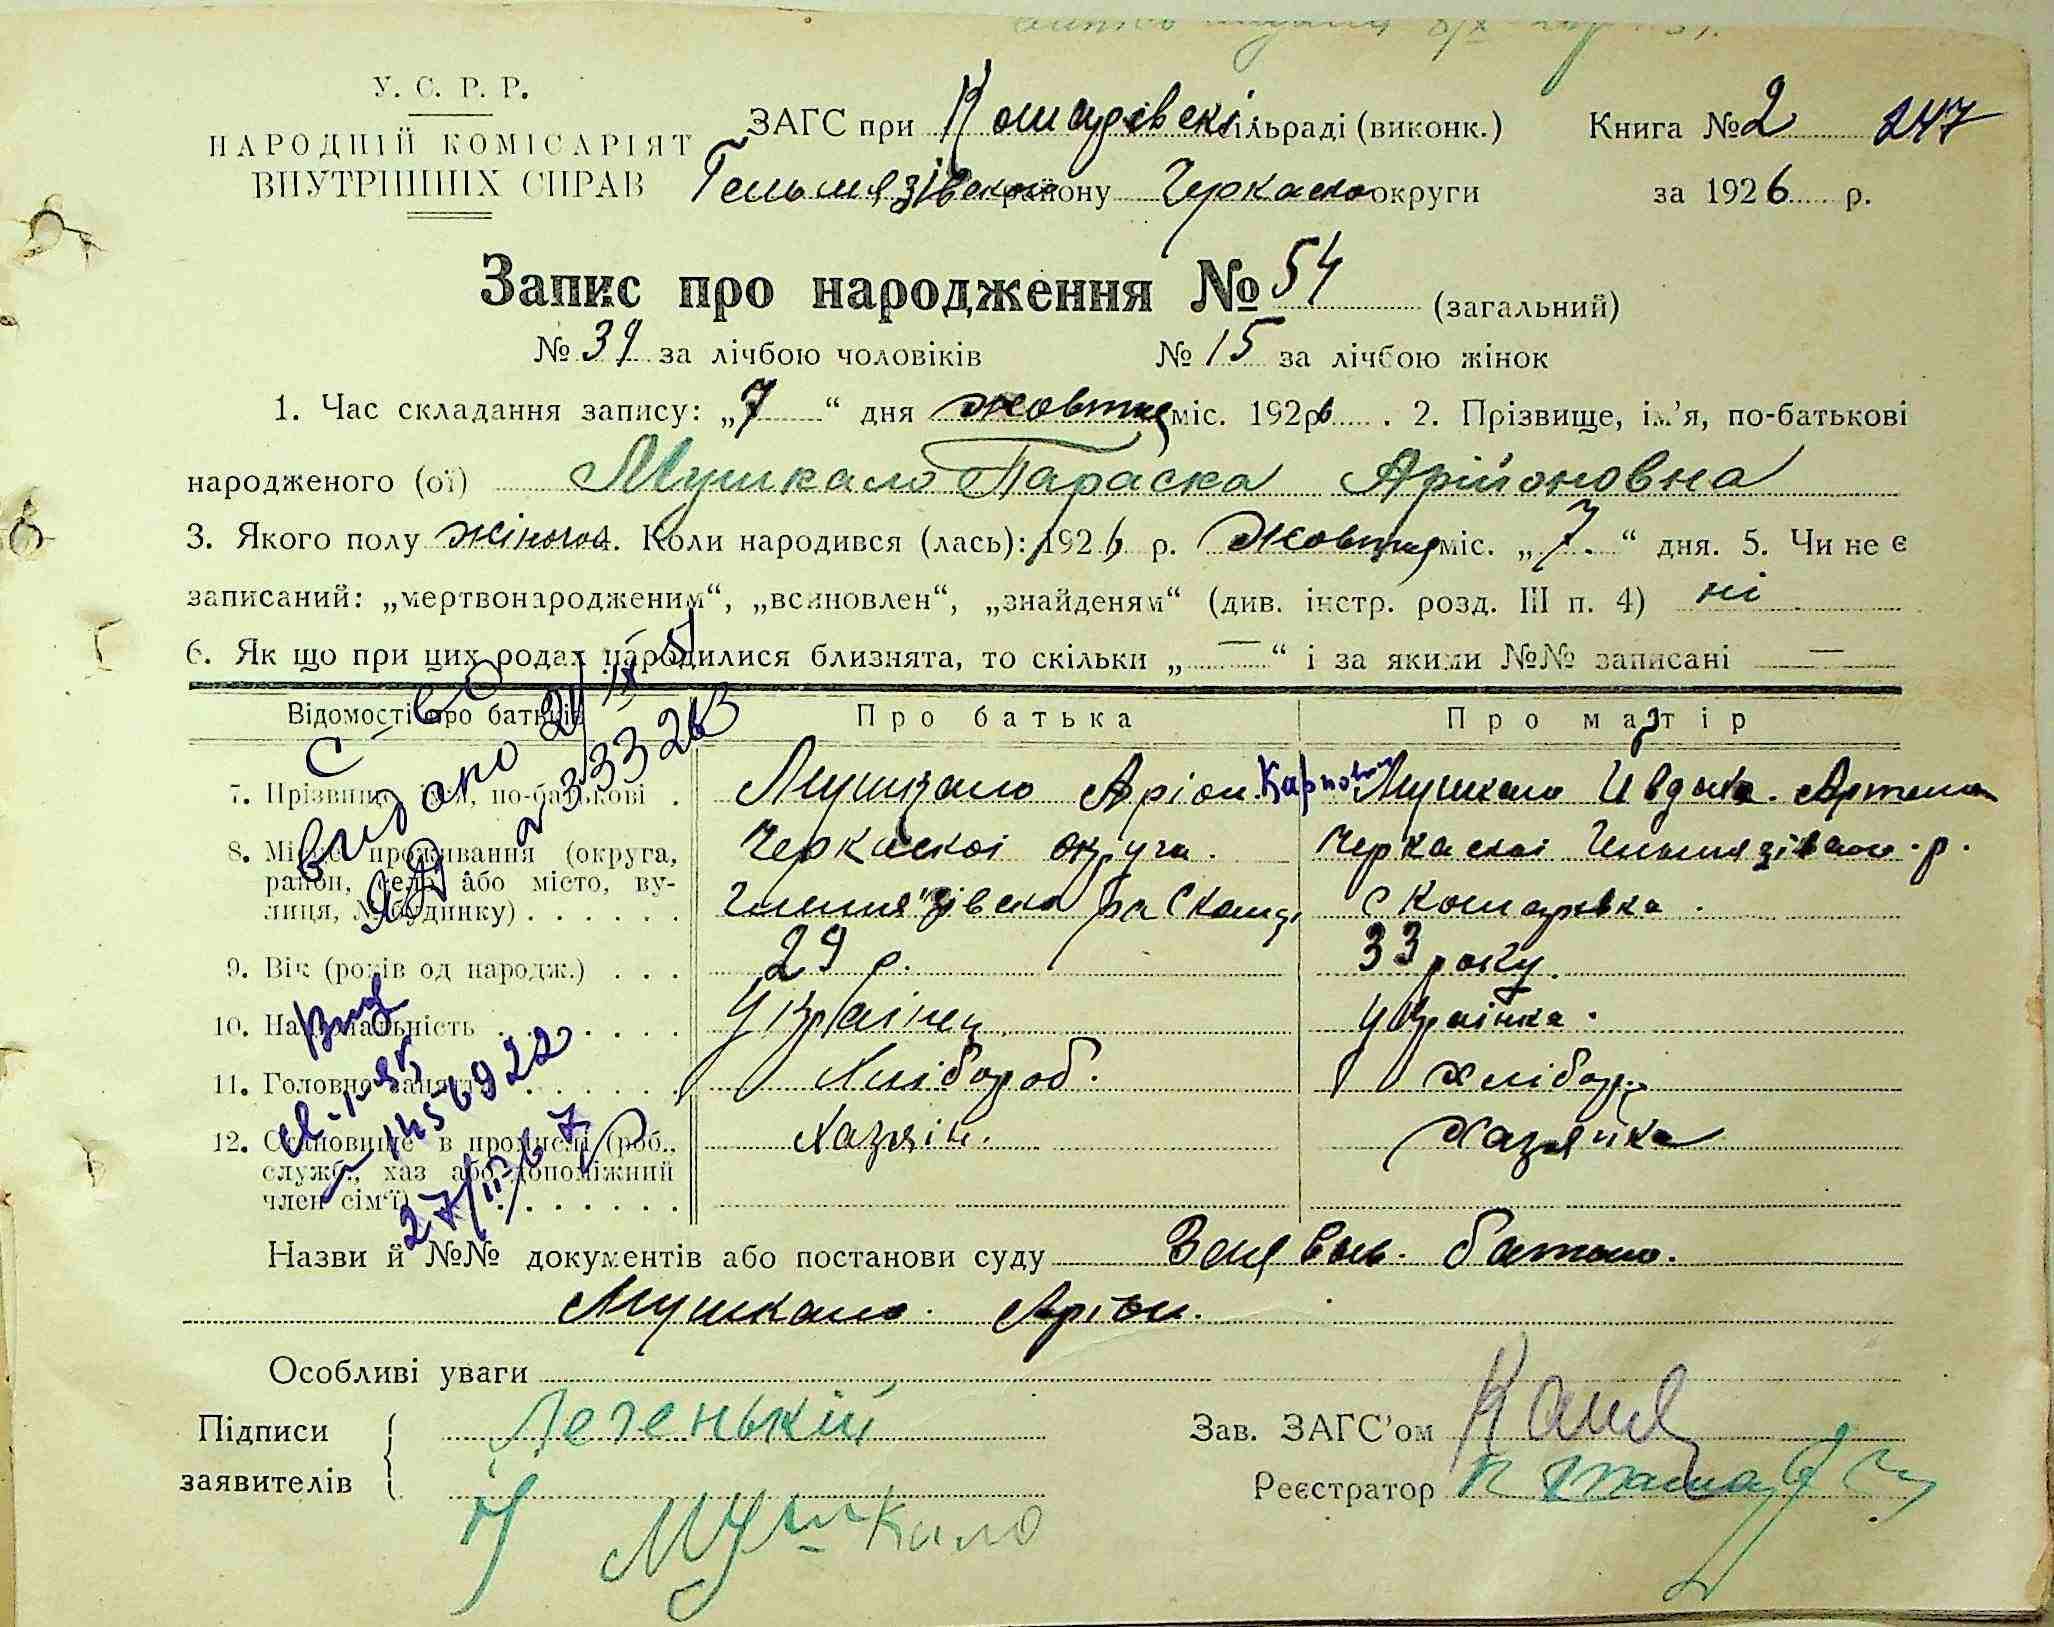 У. С. Р. Р.
НАРОДНІЙ КОМІСАРІЯТ
ВНУТРІШНІХ СПРАВ
ЗАГС при Кошарівскі сільраді (виконк.)
Книга № 2 247
Гельмязівского району Черкаско округи
за 1926 р.
Запис про народження № 54 (загальний)
№ 39 за лічбою чоловіків № 15 за лічбою жінок
1. Час складання запису: „7“ дня жовтня міс. 1926 р. 2. Прізвище, ім’я, по-батькові
народженого (ої) Мушкало Параска Арійоновна
3. Якого полу жіночог 4. Коли народився (лась): 1926 р. Жовтня міс. „7.“ дня. 5. Чи не є
записаний: „мертвонародженим“, „всиновлен“, „знайденям“ (див. інстр. розд. III п. 4) ні
6. Як що при цих родах народилися близнята, то скільки „—“ і за якими №№ записані —
Відомості про батьків
Про батька
Про матір
7. Прізвище, ім’я, по-батькові .
Мушкало Аріон Карпович
Мушкало Ивдоха. Артемов
8. Місце проживання (округа, район, село або місто, вулиця, № будинку) . . . . . .
Черкаскоі округи.
Черкаскоі р.
с Кошарівка.
9. Вік (років од народж.) . . .
29 р.
33 року.
10. Національність . . . . . . .
Українец
Українка.
11. Головне заняття . . . . . .
Хлібороб.
хлібор.
12. Становище в промислі (роб., служб., хаз або допоміжний член сім’ї) . . . . . . . .
Хазяін.
Хазяйка
видано 21/IX 51
СД 2333263
27/II 67
Назви й №№ документів або постанови суду Заява батько.
Мушкало. Аріон.
Особливі уваги
Підписи заявителів
Легенькій
Мушкало
Зав. ЗАГС’ом
Реєстратор